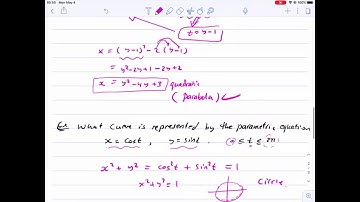 t = y-1
x = (y-1)² - 2(y-1)
= y²-2y+1-2y+2
x = y²-4y+3 quadratic
(parabola)
Ex What curve is represented by the parametric equation
x = cost, y = sint, 0 ≤ t ≤ 2π
x² + y² = cos²t + sin²t = 1
x² + y² = 1 Circle